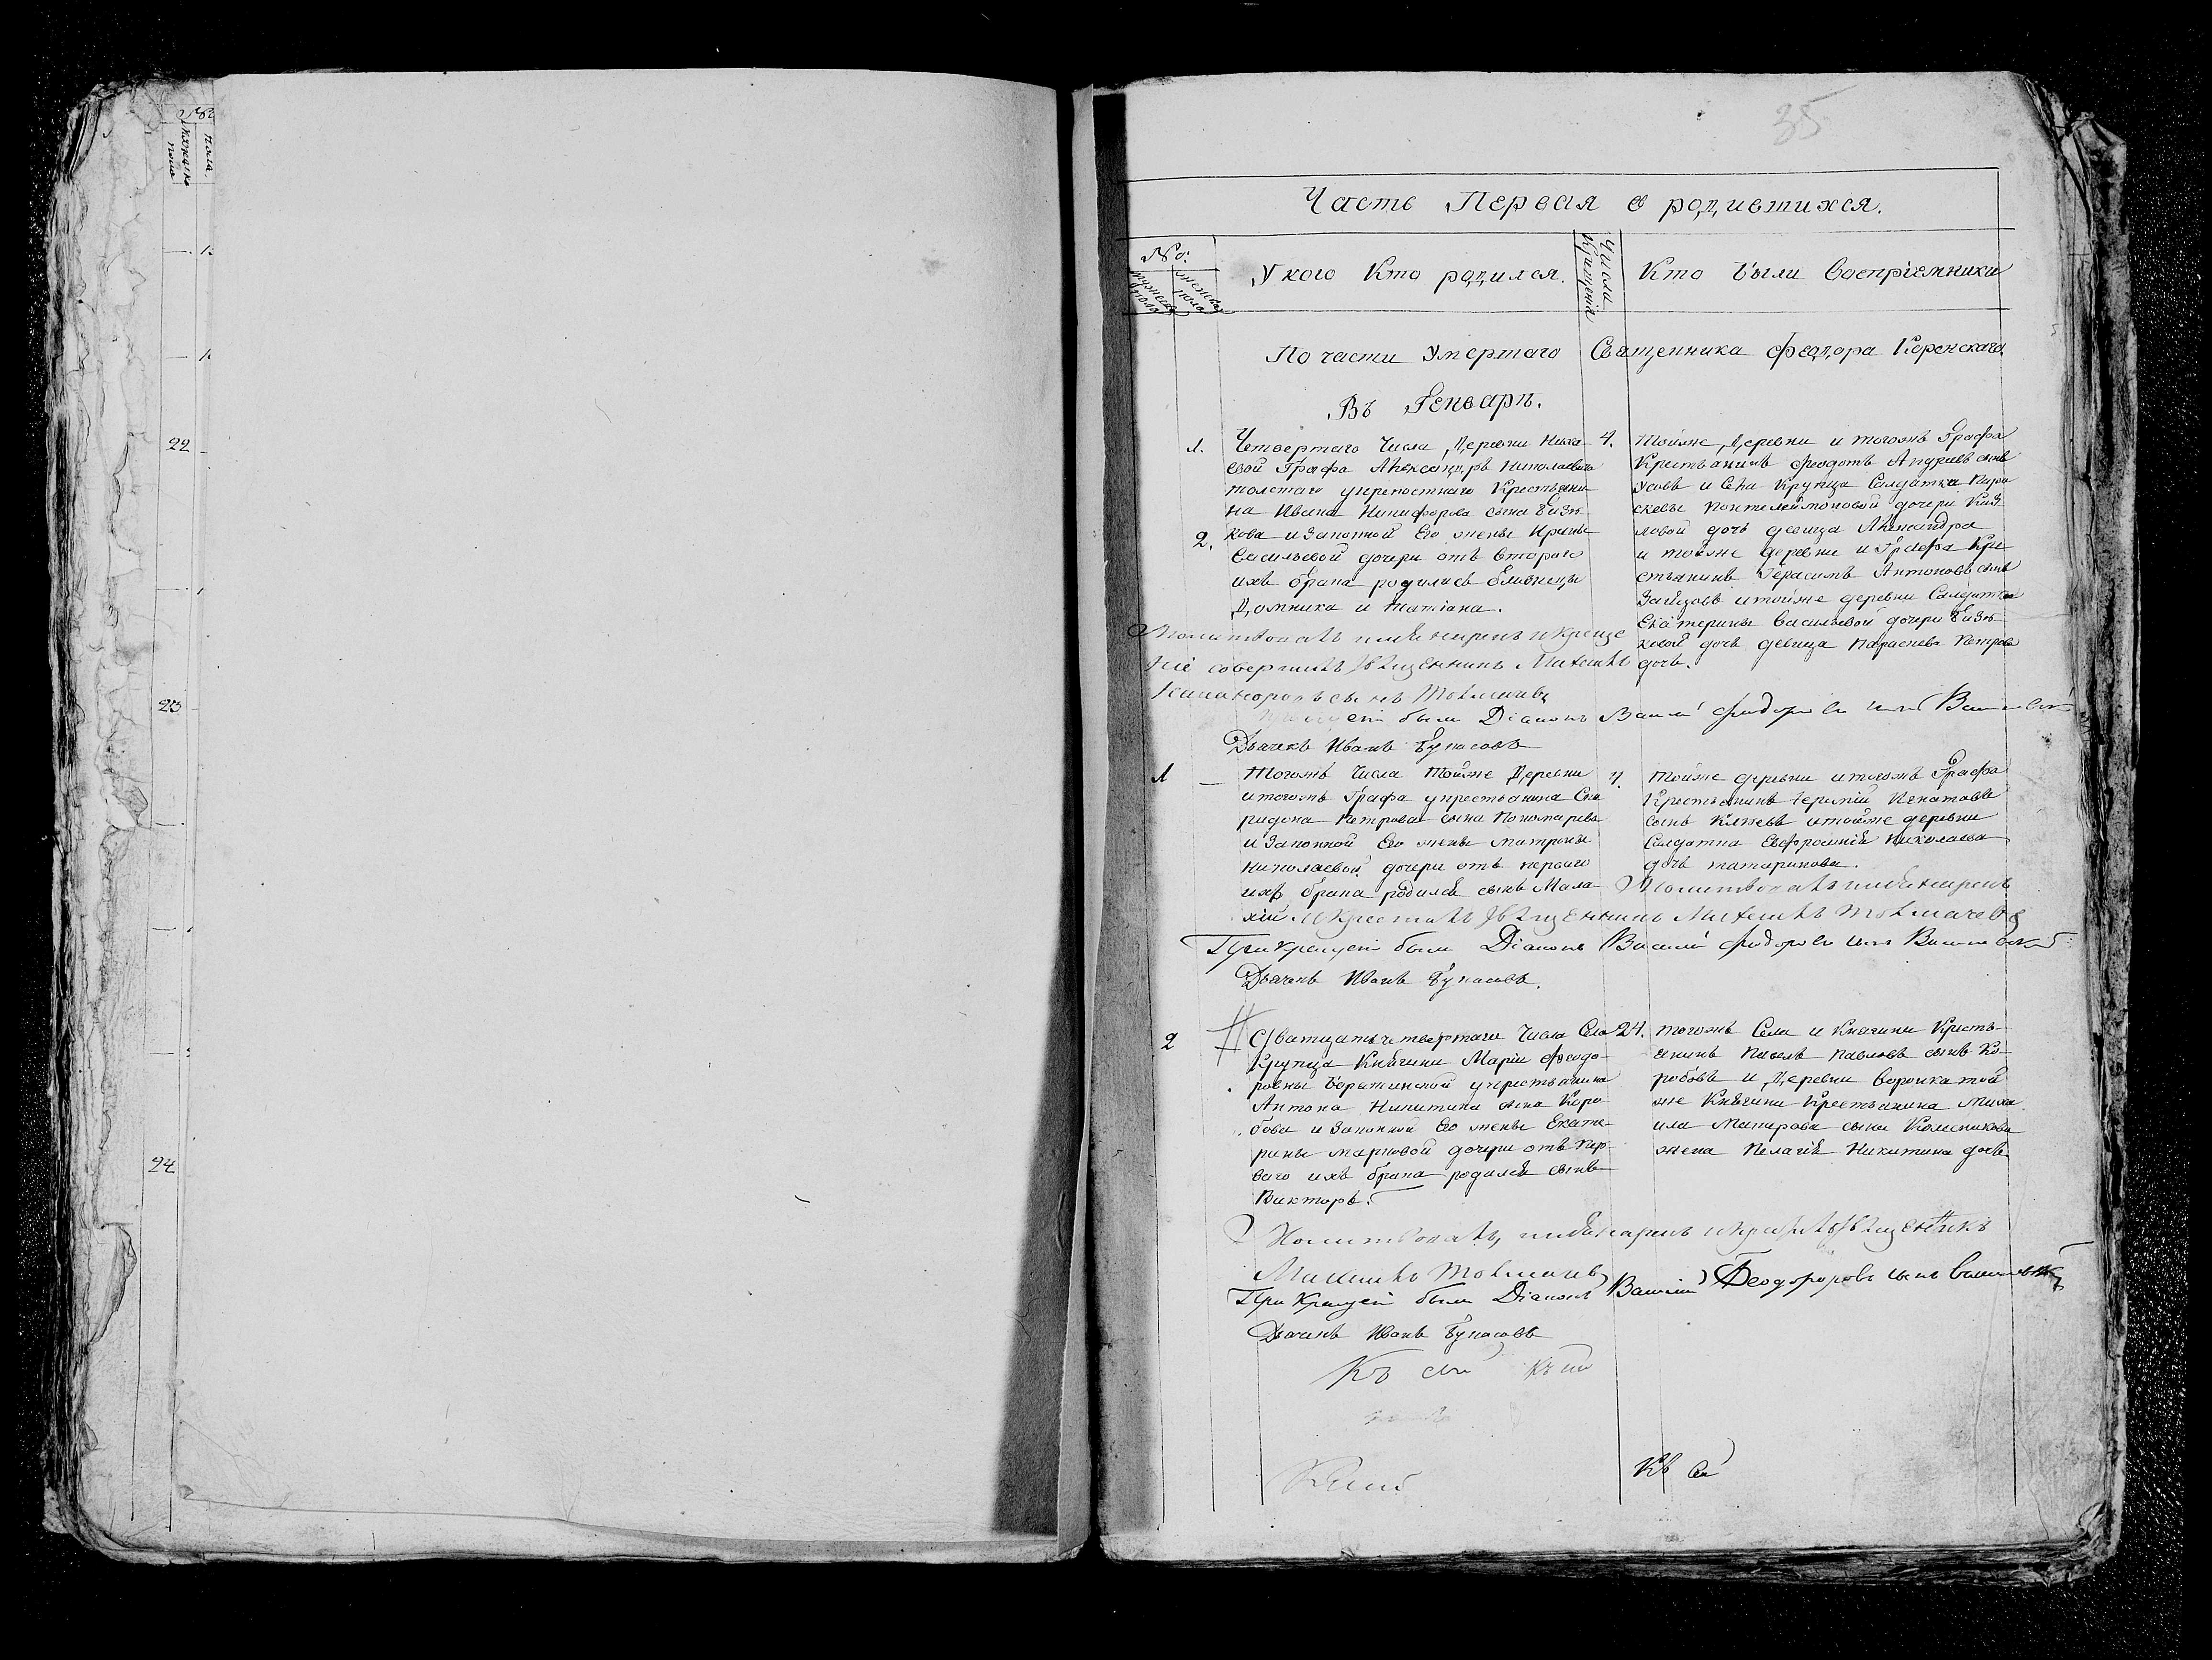 №
пола
мужеска
пола
22
23
24
35
Часть Первая о родившихся.
№:
мужеска пола
женска пола
У кого Кто родился.
Числа Крещенія
Кто были Воспріемники
По части Умершаго Священника Феодора Коренскаго
Въ Генваръ.
1.
Четвертаго Числа Деревни
4.
евой Графа Александръ Николаевича
толстаго укрепостнаго Крестьяни-
на Ивана Никифорова сына
2.
кова и Законной Его жены Ирины
Васильевой дочери отъ втораго
ихъ брака родились близнецы
Домника и татіана.
Тойже Деревни и тогожъ Графа
Крестьянинъ Феодотъ Андреевъ сынъ
Усовъ и Села Крупца Салдатки Пара
скевы Понтелеймоновой дочери
ловой дочь девица Александра
и тойже деревни и Графа Кре-
стьянинъ Герасимъ Антоновъ сынъ
Зайцовъ и тойже деревни Салдатки
Екатерины Васильевой дочери
ковой дочь девица Параскева Петрова
дочь.
Молитвовалъ имя нарекъ и креще
ніе совершилъ Священникъ Михаилъ
Никаноровъ сынъ Толмачевъ
были Діаконъ Василій Федоровъ сынъ
Дьячекъ Иванъ Булгаковъ
1
Тогожъ Числа Тойже Деревни
4.
и тогожъ Графа укрестьянина Спи
ридона Петрова сына Пономарева
и Законной Его жены Матроны
Николаевой дочери отъ перваго
ихъ брака родился сынъ Мала-
хій
тойже деревни и тогожъ Графа
Крестьянинъ Игнатовъ
сынъ и тойже деревни
Салдатка Евфросинія Николаева
дочь татаринова.
Молитвовалъ имя нарекъ
и крестилъ Священникъ Михаилъ Толмачевъ
При Крещеніи были Діаконъ Василій Федоровъ сынъ
Дьячекъ Иванъ Булгаковъ.
2
Дватцать четвертаго Числа Села
24.
Крупца Княгини Маріи Феодо-
ровны Барятинской укрестьянина
Антона Никитина сына Коро-
бова и Законной Его жены Екате-
рины Марковой дочери отъ пер-
ваго ихъ брака родился сынъ
Викторъ.
тогожъ Села и Княгини Кресть-
янинъ Павелъ Павловъ сынъ Ко-
робовъ и Деревни Воронка той
же Княгини Крестьянина Миха
ила сына Колесникова
жена Пелагія Никитина дочь
Молитвовалъ, имя нарекъ и крестилъ Священникъ
Михаилъ Толмачевъ
При Крещеніи были Діаконъ Василій Феодоровъ сынъ
Дьячекъ Иванъ Булгаковъ
Къ сей
Къ сей